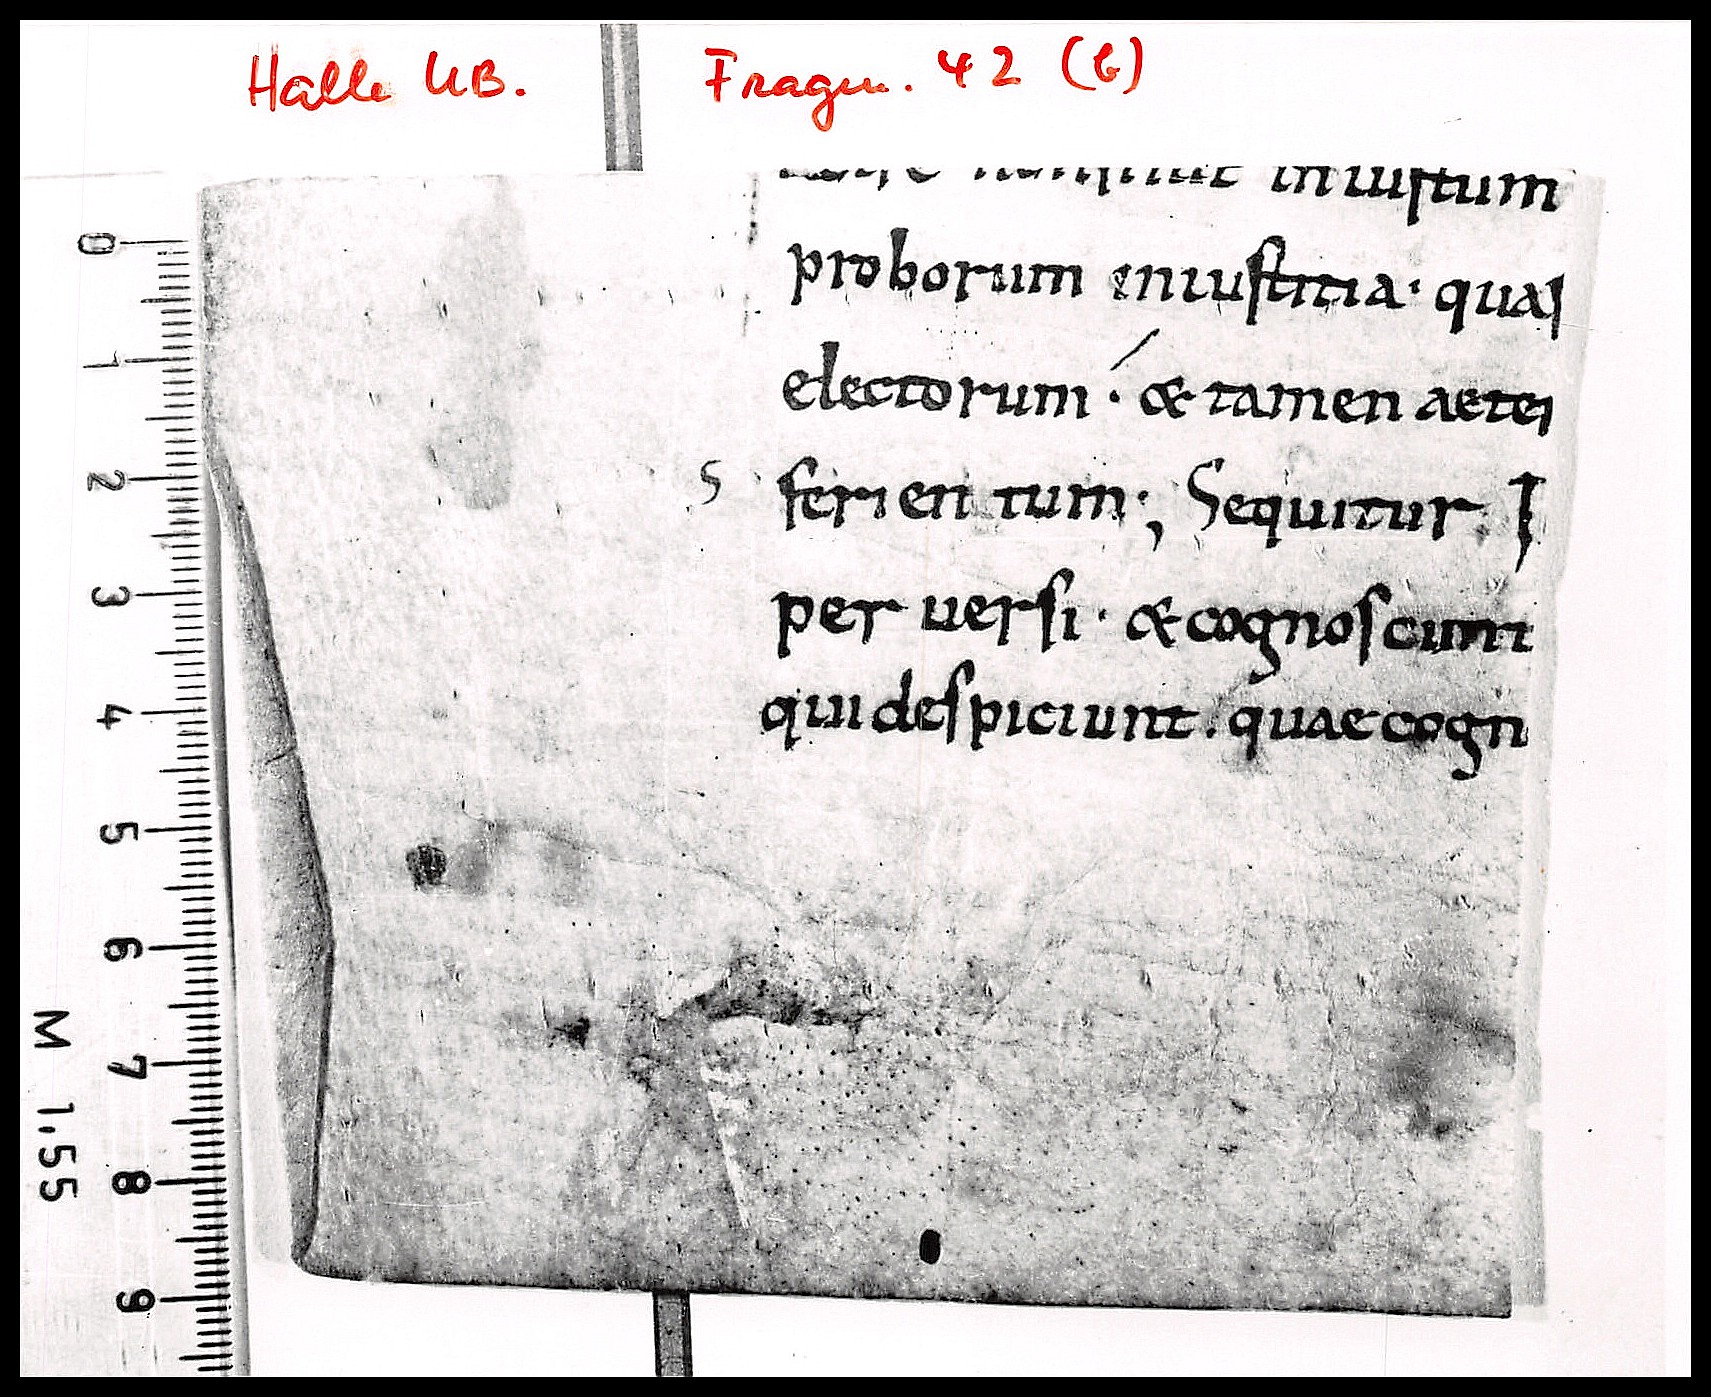 Halle UB. Fragm. 42 (b)
iniustum
proborum eniustitia· quas
electorum· & tamen aeter
s ferien tum·, Sequitur I
per uersi· & cognoscunt
qui despiciunt. quae cogn
0
1
2
3
4
5
6
7
8
9
M 1,55